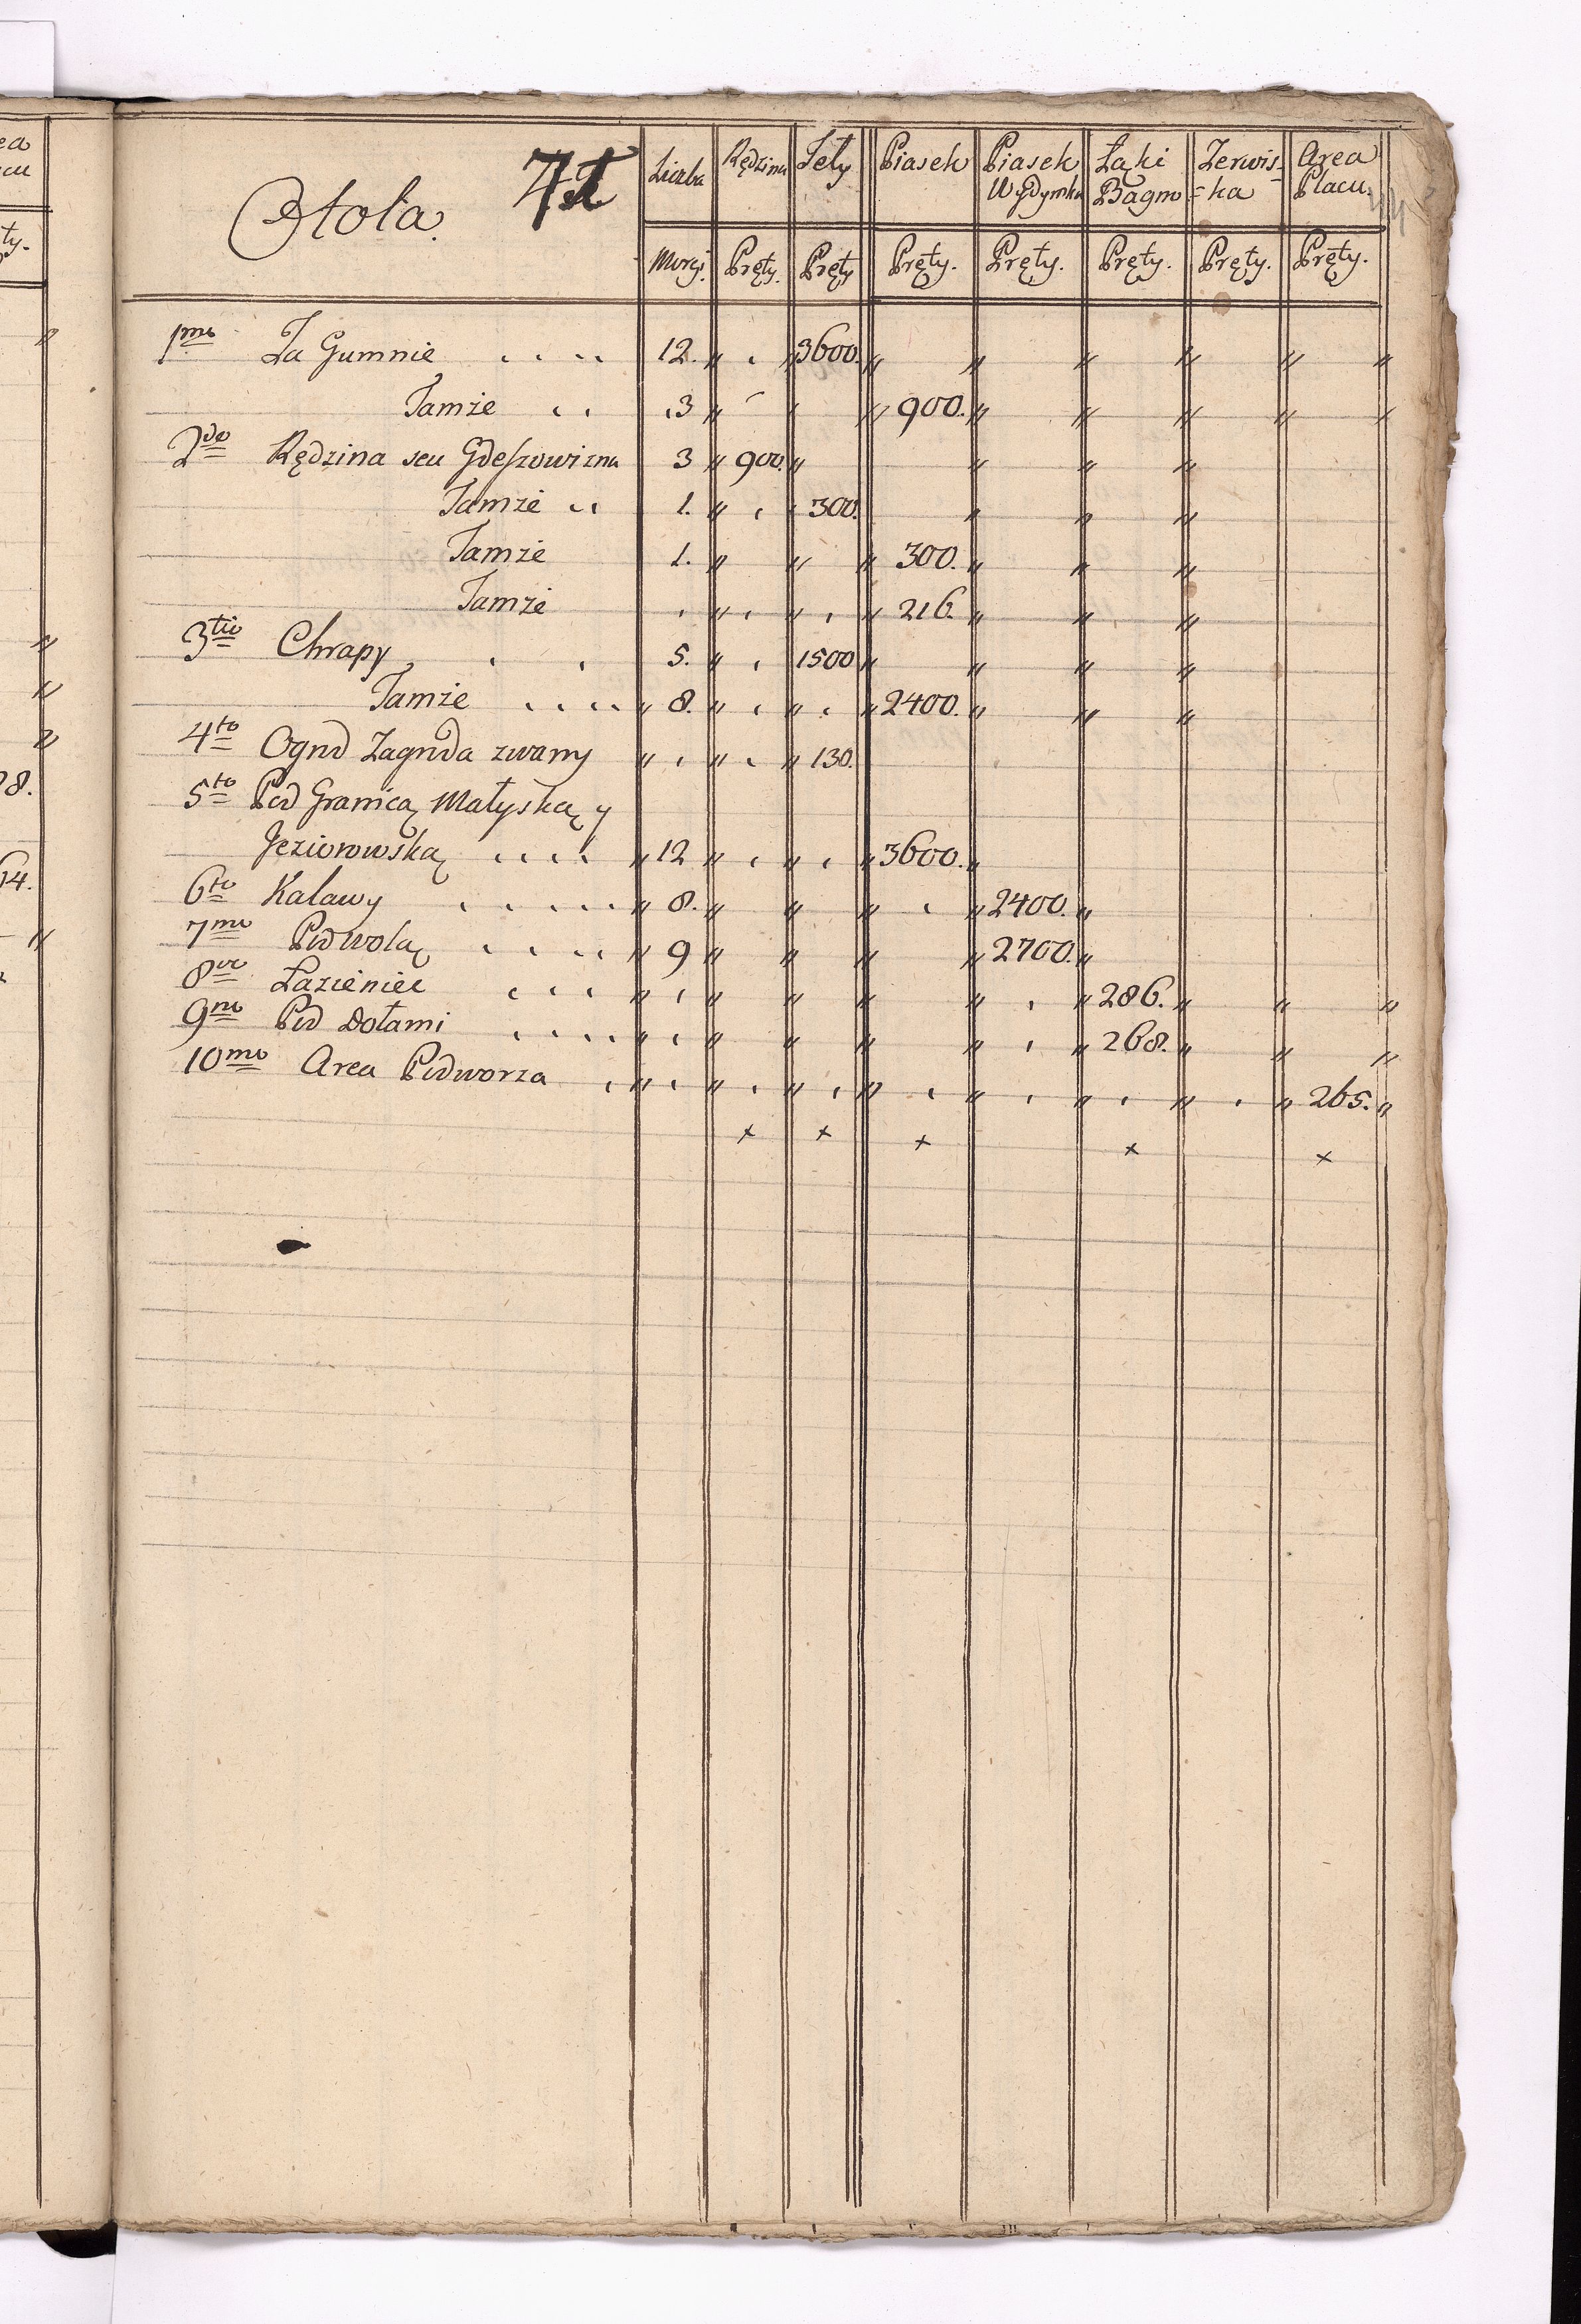 Otola. 7
Liczba Rędzina Iety Piasek Piasek Łąki Zerwis- Area
Wydymka Bagno =ka Placu.
Morgi. Pręty. Pręty Pręty. Pręty. Pręty. Pręty. Pręty.
1mo Za Gumnie .... 12. 3600.
Tamże .. 3 900.
2do Rędzina seu Gdeszowizna 3 900.
Tamże .. 1. 300.
Tamże 1. 300.
Tamże 216.
3tio Chrapy . . 5. 1500
Tamże .... 8. 2400.
4to Ogrod Zagroda zwany 130.
5to Pod Granicą Małyską y
Jeziorowską .... 12 3600.
6to Kalawy ..... 8. 2400.
7mo Podwolą .... 9 2700.
8vo Łazieniec ... 286.
9no Pod Dołami .... 268.
10mo Area Podworza . 265.
x x x x x
ea
cu
ty.
8.
4.